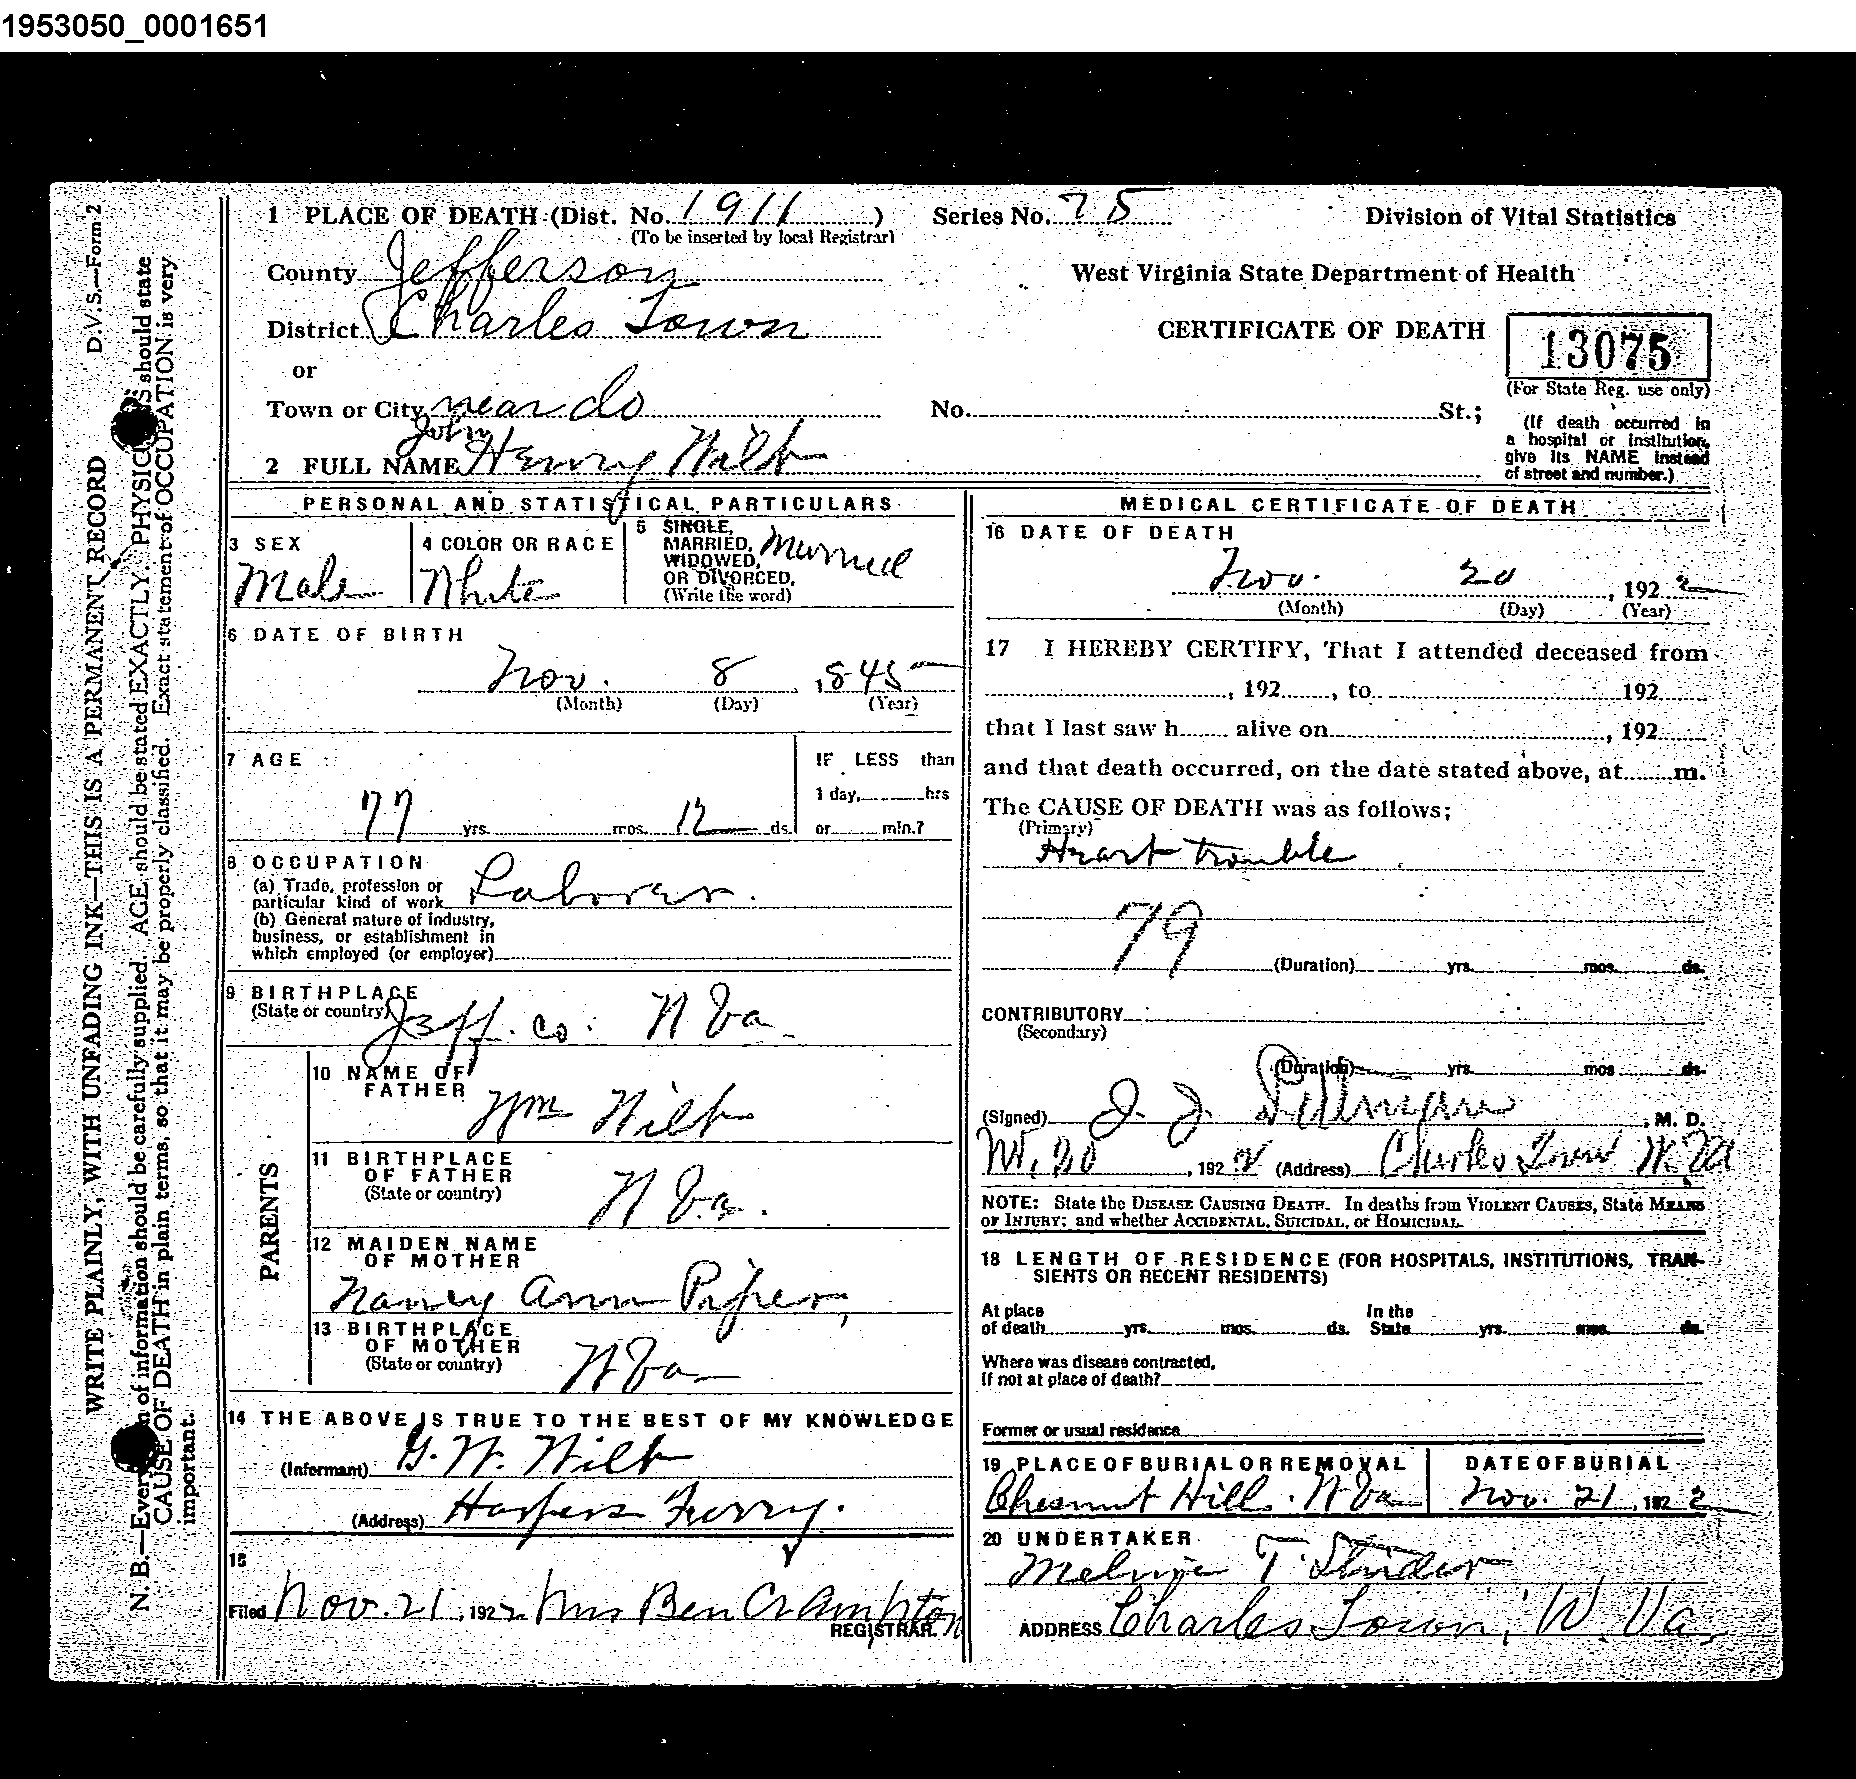 1953050_0001651
D.V.S.—Form 2
WRITE PLAINLY, WITH UNFADING INK—THIS IS A PERMANENT RECORD
N. B.—Every of information should be carefully supplied. AGE should be stated EXACTLY. PHYSIC S should state
CAUSE OF DEATH in plain terms, so that it may be properly classified. Exact statement of OCCUPATION is very
important.
1 PLACE OF DEATH (Dist. No. 1911 ) Series No. 75 Division of Vital Statistics
(To be inserted by local Registrar)
County Jefferson West Virginia State Department of Health
District Charles Town CERTIFICATE OF DEATH 13075
or
(For State Reg. use only)
Town or City near do No. St.;
(If death occurred in
a hospital or institution,
give its NAME instead
of street and number.)
John
2 FULL NAME Henry Wilt
PERSONAL AND STATISTICAL PARTICULARS
3 SEX
Male
4 COLOR OR RACE
White
5 SINGLE,
MARRIED,
WIDOWED,
OR DIVORCED,
(Write the word)
Married
6 DATE OF BIRTH
Nov. 8 , 845
(Month) (Day) (Year)
7 AGE
77 yrs. mos. 12 ds.
IF LESS than
1 day, hrs
or min.?
8 OCCUPATION
(a) Trade, profession or
particular kind of work Laborer.
(b) General nature of industry,
business, or establishment in
which employed (or employer)
9 BIRTHPLACE
(State or country) Jeff. co. W Va
PARENTS
10 NAME OF
FATHER
Wm Wilt
11 BIRTHPLACE
OF FATHER
(State or country)
W Va.
12 MAIDEN NAME
OF MOTHER
Nancy Ann Piper,
13 BIRTHPLACE
OF MOTHER
(State or country)
W Va
14 THE ABOVE IS TRUE TO THE BEST OF MY KNOWLEDGE
(Informant) G. W. Wilt
(Address) Harpers Ferry.
15
Filed Nov. 21, 1922 Mrs Ben Crampton
REGISTRAR.
MEDICAL CERTIFICATE OF DEATH
16 DATE OF DEATH
Nov. 20 , 1922
(Month) (Day) (Year)
17 I HEREBY CERTIFY, That I attended deceased from
, 192 , to 192
that I last saw h alive on , 192
and that death occurred, on the date stated above, at m.
The CAUSE OF DEATH was as follows;
(Primary)
Heart trouble
79
(Duration) yrs. mos. ds.
CONTRIBUTORY
(Secondary)
(Duration) yrs. mos. ds.
(Signed) , M. D.
Nv, 20 , 1922 (Address) Charles Town W. Va
NOTE: State the DISEASE CAUSING DEATH. In deaths from VIOLENT CAUSES, State MEANS
OF INJURY; and whether ACCIDENTAL, SUICIDAL, or HOMICIDAL.
18 LENGTH OF RESIDENCE (FOR HOSPITALS, INSTITUTIONS, TRAN-
SIENTS OR RECENT RESIDENTS)
At place
of death yrs. mos. ds.
In the
State yrs. mos. ds.
Where was disease contracted,
If not at place of death?
Former or usual residence
19 PLACE OF BURIAL OR REMOVAL
Chesnut Hill. W Va
DATE OF BURIAL
Nov. 21, 1922
20 UNDERTAKER
Melvin T. Strider
ADDRESS Charles Town, W. Va.